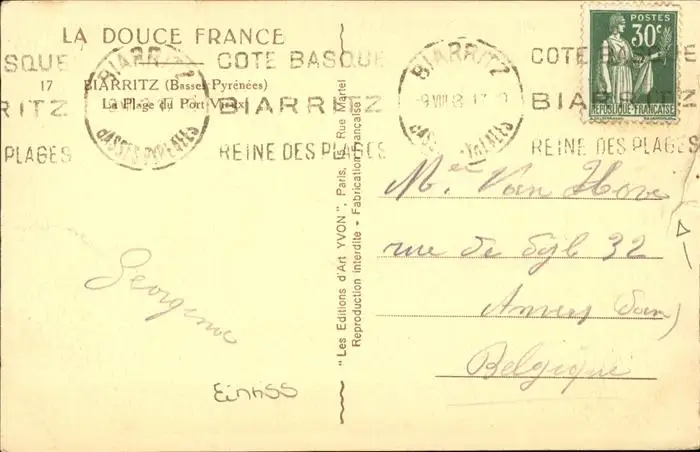 LA DOUCE FRANCE
17
BIARRITZ (Basses-Pyrénées)
La Plage du Port-Vieux
BIARRITZ
BASSES-PYRENEES
SQUE
RITZ
PLAGES
COTE BASQUE
BIARRITZ
REINE DES PLAGES
BIARRITZ
BASSES-PYRENEES
COTE BASQUE
BIARRITZ
REINE DES PLAGES
POSTES
30c
REPUBLIQUE FRANÇAISE
"Les Editions d'Art YVON", Paris, Rue Martel
Reproduction Interdite - Fabrication Française
Georgine
Van Hove
rue de 32
Anvers
Belgique